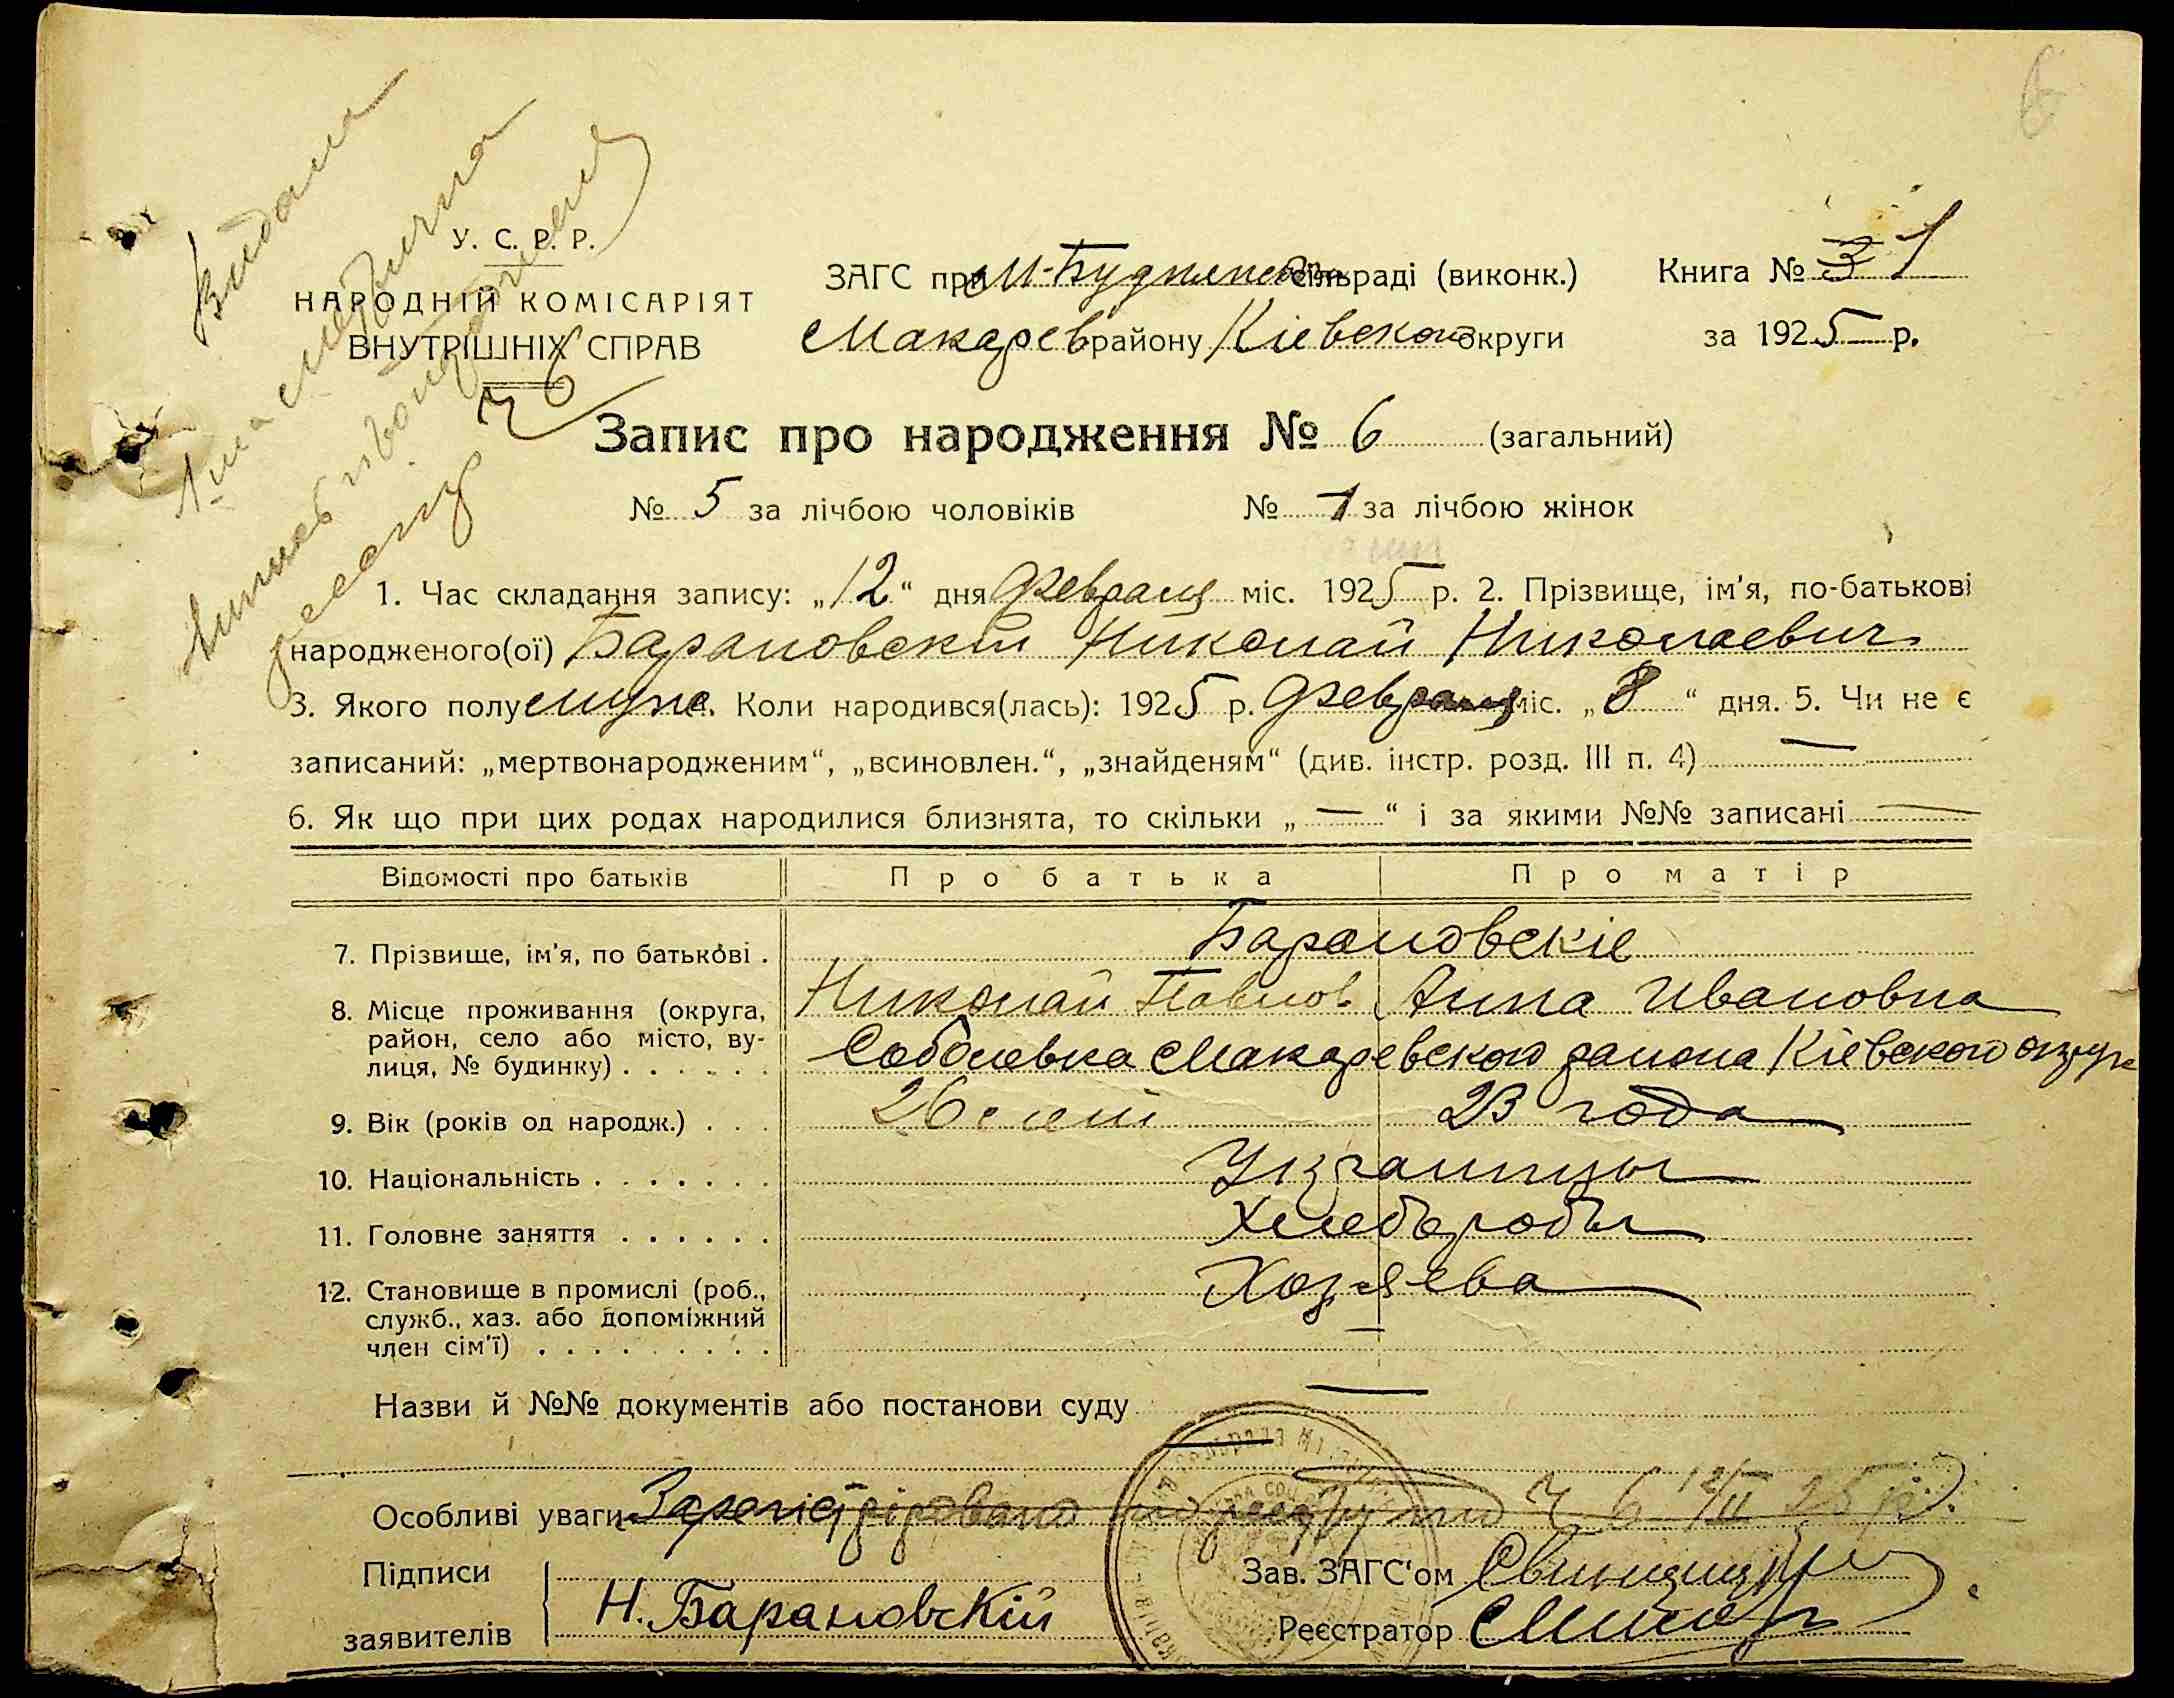 Видана
У. С. Р. Р.
НАРОДНІЙ КОМІСАРІЯТ
ВНУТРІШНІХ СПРАВ
ЗАГС при М-Будянской сільраді (виконк.)
Книга № 3 1
Макарев району Кіевской округи
за 1925 р.
Запис про народження № 6 (загальний)
№ 5 за лічбою чоловіків № 1 за лічбою жінок
1. Час складання запису: „12“ дня февраля міс. 1925 р. 2. Прізвище, ім'я, по-батькові
народженого(ої) Барановскій Николай Николаевич
3. Якого полу муж. Коли народився(лась): 1925 р. февраля міс. „8“ дня. 5. Чи не є
записаний: „мертвонародженим“, „всиновлен.“, „знайденям“ (див. інстр. розд. III п. 4) —
6. Як що при цих родах народилися близнята, то скільки „—“ і за якими №№ записані —
Відомості про батьків Про батька Про матір
7. Прізвище, ім'я, по батькові . Барановскіе
Николай Павлов. Анна Ивановна
8. Місце проживання (округа,
район, село або місто, ву-
лиця, № будинку) . . . . . .
Соболевка Макаревского района Кіевского округа
9. Вік (років од народж.) . . . 26 лет 23 года
10. Національність . . . . . . . Украинцы
11. Головне заняття . . . . . . Хлеборобы
12. Становище в промислі (роб.,
служб., хаз. або допоміжний
член сім'ї) . . . . . . . . .
Хозяева
Назви й №№ документів або постанови суду —
Особливі уваги Зарегістрировано по реестру по № 6 12/II 25 р.
Підписи
заявителів
Н. Барановскій
Зав. ЗАГС'ом
Реєстратор